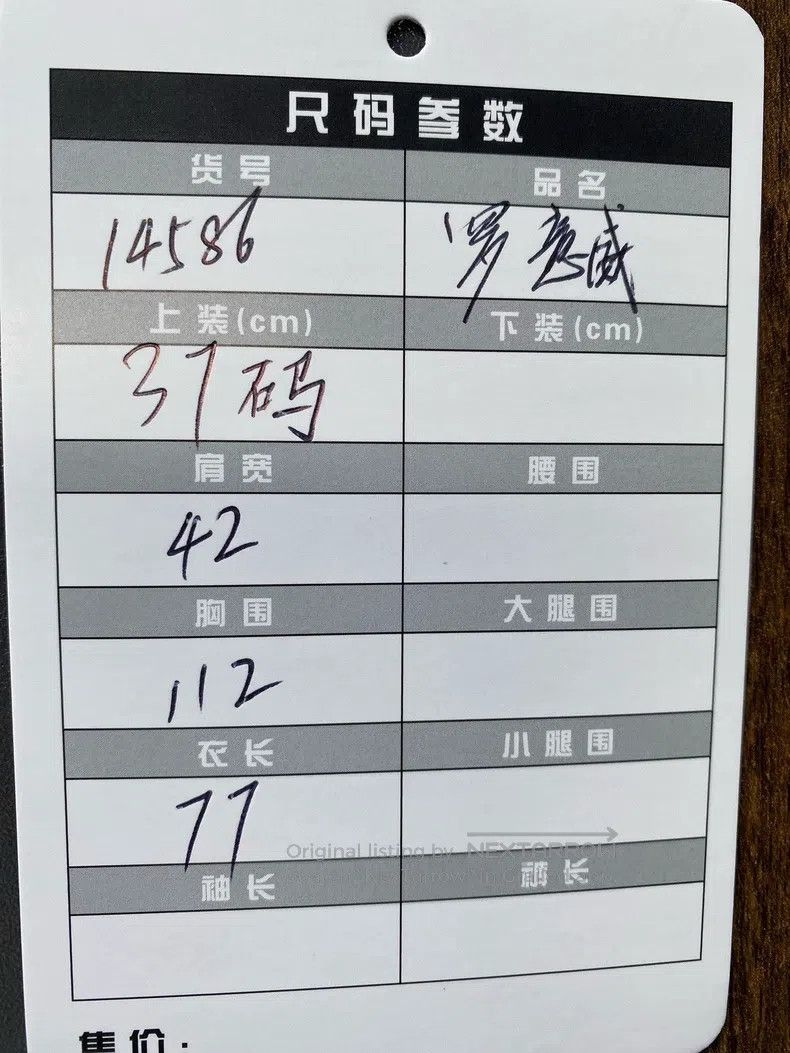 尺码参数
货号 品名
14586 罗意威
上装(cm) 下装(cm)
37码
肩宽 腰围
42
胸围 大腿围
112
衣长 小腿围
77
Original listing by
袖长 裤长
售价: